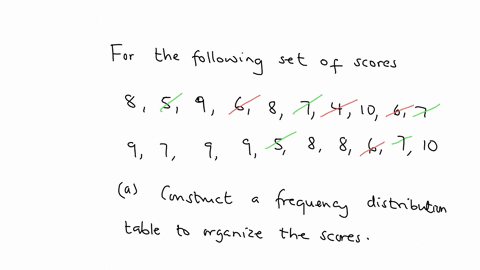 For the following set of scores
8, 5, 9, 6, 8, 7, 4, 10, 6, 7
9, 7, 9, 9, 5, 8, 8, 6, 7, 10
(a) Construct a frequency distribution
table to organize the scores.